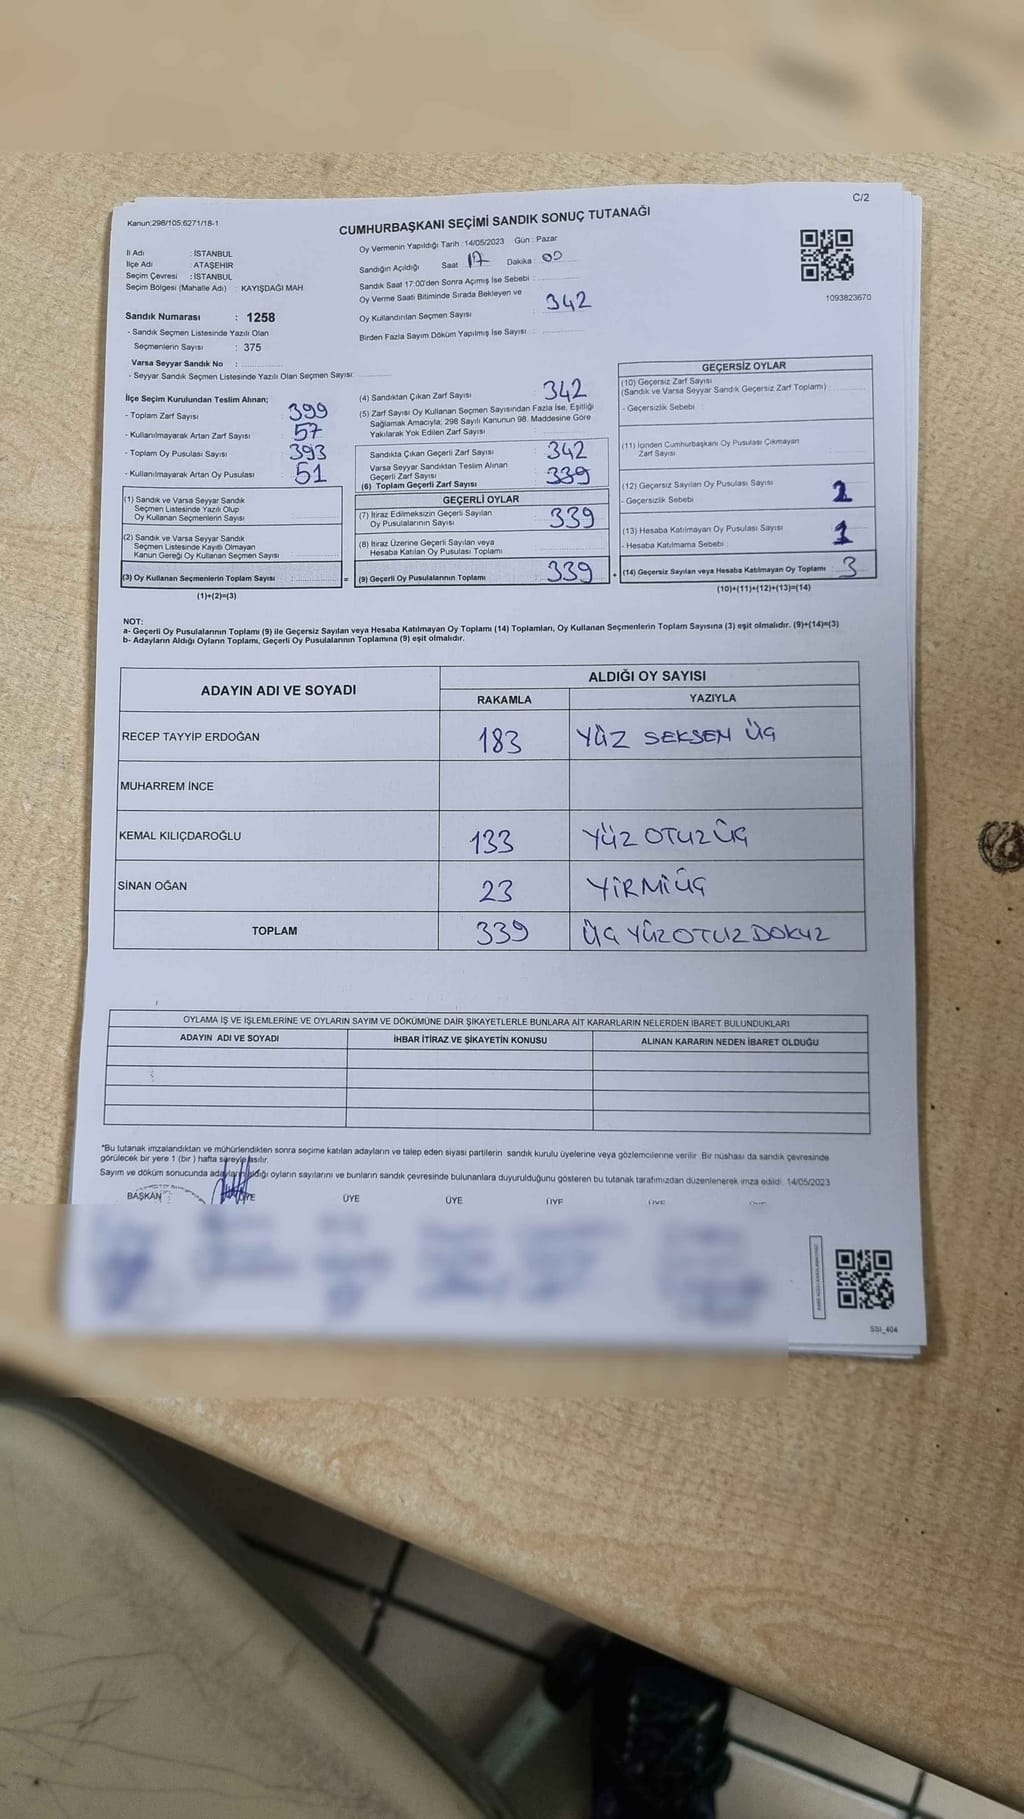 C/2
Kanun:298/105,6271/18-1
CUMHURBAŞKANI SEÇİMİ SANDIK SONUÇ TUTANAĞI
İl Adı : İSTANBUL
İlçe Adı : ATAŞEHİR
Seçim Çevresi : İSTANBUL
Seçim Bölgesi (Mahalle Adı) : KAYIŞDAĞI MAH.
Oy Vermenin Yapıldığı Tarih : 14/05/2023 Gün : Pazar
Sandığın Açıldığı Saat : 17 Dakika : 00
Sandık Saat 17:00'den Sonra Açımış İse Sebebi :
Oy Verme Saati Bitiminde Sırada Bekleyen ve
Oy Kullandırılan Seçmen Sayısı : 342
Birden Fazla Sayım Döküm Yapılmış İse Sayısı :
1093823670
Sandık Numarası : 1258
- Sandık Seçmen Listesinde Yazılı Olan
Seçmenlerin Sayısı : 375
Varsa Seyyar Sandık No :
- Seyyar Sandık Seçmen Listesinde Yazılı Olan Seçmen Sayısı:
İlçe Seçim Kurulundan Teslim Alınan;
- Toplam Zarf Sayısı : 399
- Kullanılmayarak Artan Zarf Sayısı : 57
- Toplam Oy Pusulası Sayısı : 393
- Kullanılmayarak Artan Oy Pusulası : 51
(1) Sandık ve Varsa Seyyar Sandık
Seçmen Listesinde Yazılı Olup
Oy Kullanan Seçmenlerin Sayısı
(2) Sandık ve Varsa Seyyar Sandık
Seçmen Listesinde Kayıtlı Olmayan
Kanun Gereği Oy Kullanan Seçmen Sayısı
(3) Oy Kullanan Seçmenlerin Toplam Sayısı =
(1)+(2)=(3)
(4) Sandıktan Çıkan Zarf Sayısı : 342
(5) Zarf Sayısı Oy Kullanan Seçmen Sayısından Fazla İse, Eşitliği
Sağlamak Amacıyla; 298 Sayılı Kanunun 98. Maddesine Göre
Yakılarak Yok Edilen Zarf Sayısı
Sandıkta Çıkan Geçerli Zarf Sayısı 342
Varsa Seyyar Sandıktan Teslim Alınan
Geçerli Zarf Sayısı
(6) Toplam Geçerli Zarf Sayısı 339
GEÇERLİ OYLAR
(7) İtiraz Edilmeksizin Geçerli Sayılan
Oy Pusulalarının Sayısı 339
(8) İtiraz Üzerine Geçerli Sayılan veya
Hesaba Katılan Oy Pusulası Toplamı
(9) Geçerli Oy Pusulalarının Toplamı 339 +
GEÇERSİZ OYLAR
(10) Geçersiz Zarf Sayısı
(Sandık ve Varsa Seyyar Sandık Geçersiz Zarf Toplamı) :
- Geçersizlik Sebebi :
(11) İçinden Cumhurbaşkanı Oy Pusulası Çıkmayan
Zarf Sayısı
(12) Geçersiz Sayılan Oy Pusulası Sayısı
- Geçersizlik Sebebi : 2
(13) Hesaba Katılmayan Oy Pusulası Sayısı
- Hesaba Katılmama Sebebi : 1
(14) Geçersiz Sayılan veya Hesaba Katılmayan Oy Toplamı 3
(10)+(11)+(12)+(13)=(14)
NOT:
a- Geçerli Oy Pusulalarının Toplamı (9) ile Geçersiz Sayılan veya Hesaba Katılmayan Oy Toplamı (14) Toplamları, Oy Kullanan Seçmenlerin Toplam Sayısına (3) eşit olmalıdır. (9)+(14)=(3)
b- Adayların Aldığı Oyların Toplamı, Geçerli Oy Pusulalarının Toplamına (9) eşit olmalıdır.
ADAYIN ADI VE SOYADI ALDIĞI OY SAYISI
RAKAMLA YAZIYLA
RECEP TAYYİP ERDOĞAN 183 YÜZ SEKSEN ÜÇ
MUHARREM İNCE
KEMAL KILIÇDAROĞLU 133 YÜZ OTUZ ÜÇ
SİNAN OĞAN 23 YİRMİ ÜÇ
TOPLAM 339 ÜÇ YÜZ OTUZ DOKUZ
OYLAMA İŞ VE İŞLEMLERİNE VE OYLARIN SAYIM VE DÖKÜMÜNE DAİR ŞİKAYETLERLE BUNLARA AİT KARARLARIN NELERDEN İBARET BULUNDUKLARI
ADAYIN ADI VE SOYADI İHBAR İTİRAZ VE ŞİKAYETİN KONUSU ALINAN KARARIN NEDEN İBARET OLDUĞU
*Bu tutanak imzalandıktan ve mühürlendikten sonra seçime katılan adayların ve talep eden siyasi partilerin sandık kurulu üyelerine veya gözlemcilerine verilir. Bir nüshası da sandık çevresinde
görülecek bir yere 1 (bir ) hafta süreyle asılır.
Sayım ve döküm sonucunda adayların aldığı oyların sayılarını ve bunların sandık çevresinde bulunanlara duyurulduğunu gösteren bu tutanak tarafımızdan düzenlenerek imza edildi. 14/05/2023
BAŞKAN ÜYE ÜYE ÜYE ÜYE ÜYE
SSI_404